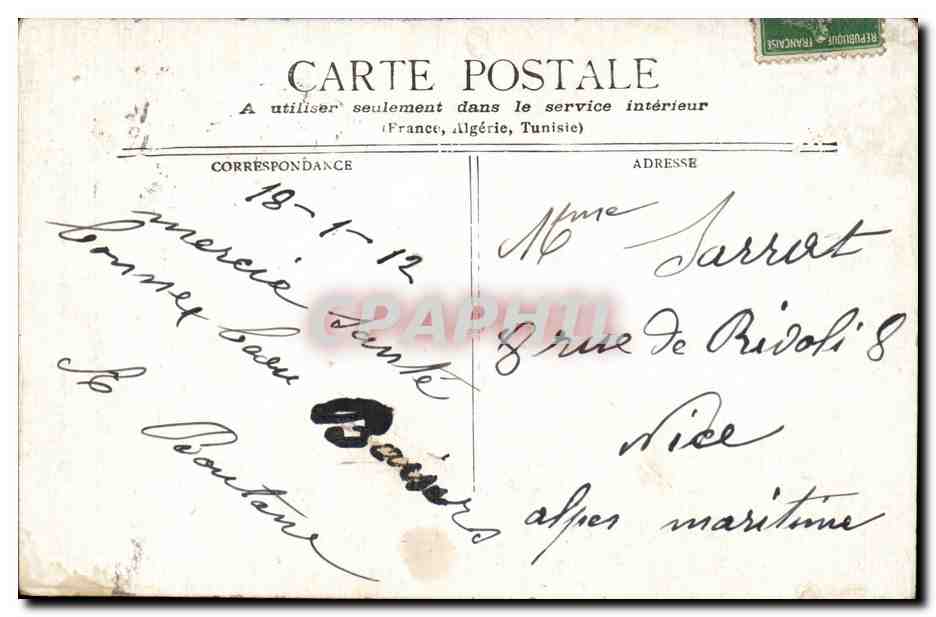 RÉPUBLIQUE FRANÇAISE
CARTE POSTALE
A utiliser seulement dans le service intérieur
(France, Algérie, Tunisie)
CORRESPONDANCE
18-1-12
mercie santé
bonnes
Baisers
Boutane
ADRESSE
Mme Sarrat
8 rue de Rivoli 8
Nice
alpes maritime
CPAPHIL